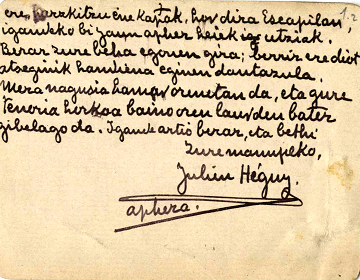 1.2
ere, barzkitzu ene kartak, hor dira Escapilan,
igandeko bi zaun apher heiek igortziak.
Beraz zure beha egonen gira; berriz ere diot
atsegin handiena eginen dautazula.
Meza nagusia hamar orenetan da, eta gure
teneria horkoa baino oren laurden batez
gibelago da. Igande artio beraz, eta bethi
zure manupeko,
Julien Héguy.
aphera.